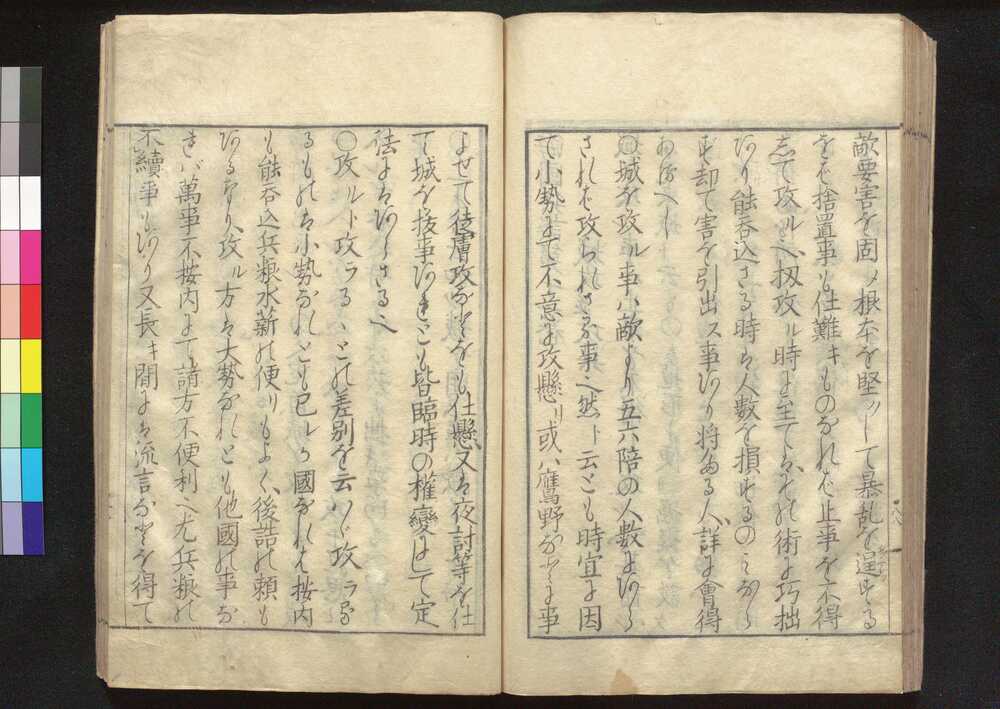 敵要害を固メ根本を堅クして暴乱を逞する
をば捨置事も仕難キものなれば止事を不得
して攻ル也扨攻ル時に至ては其の術に巧拙
あり能呑込さる時は人数を損するのミなら
す却て害を引出ス事あり将たる人詳に會得
あるへし
○城を攻ル事ハ敵より五六陪の人数にあら
されば攻られさる事也然ト云とも時宜に因
て小勢にて不意に攻懸リ或ハ鷹野などに事
よせて徒膚攻などをも仕懸又は夜討等を仕
て城を抜事あれとも皆臨時の権變にして定
法にはあらさる也
○攻ルト攻ラるゝとの差別を云ハゞ攻ラるゝ
るものは小勢なれとも己レか國なれは按内
も能呑込兵粮水薪の便リもよく後詰の頼も
あるなり攻ル方は大勢なれとも他國の事な
れバ萬事不按内にて諸方不便利也尤兵粮の
不續事もあり又長キ間には流言などを得て